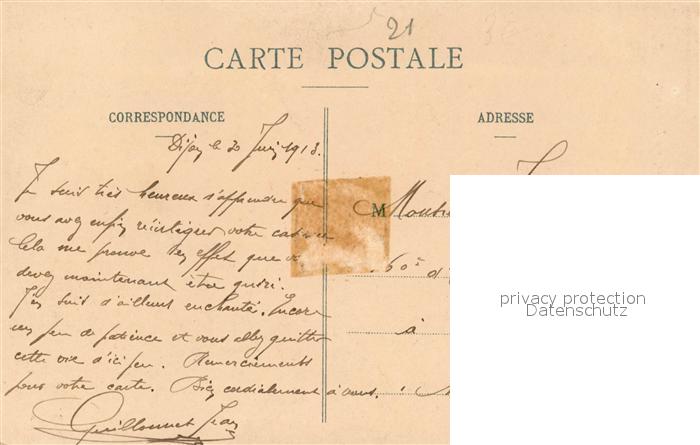 21
CARTE POSTALE
CORRESPONDANCE
ADRESSE
Dijon le 20 Juin 1913.
Je suis très heureux d'apprendre que
vous avez enfin réintégrer votre
Cela me prouve en effet que
devez maintenant être guéri.
J'en suis d'ailleurs enchanté. Encore
un peu de patience et vous allez quitter
cette vie d'ici peu. Remerciements
pour votre carte. Bien cordialement à vous.
Guillonnet Jean
M
60e
à
privacy protection
Datenschutz